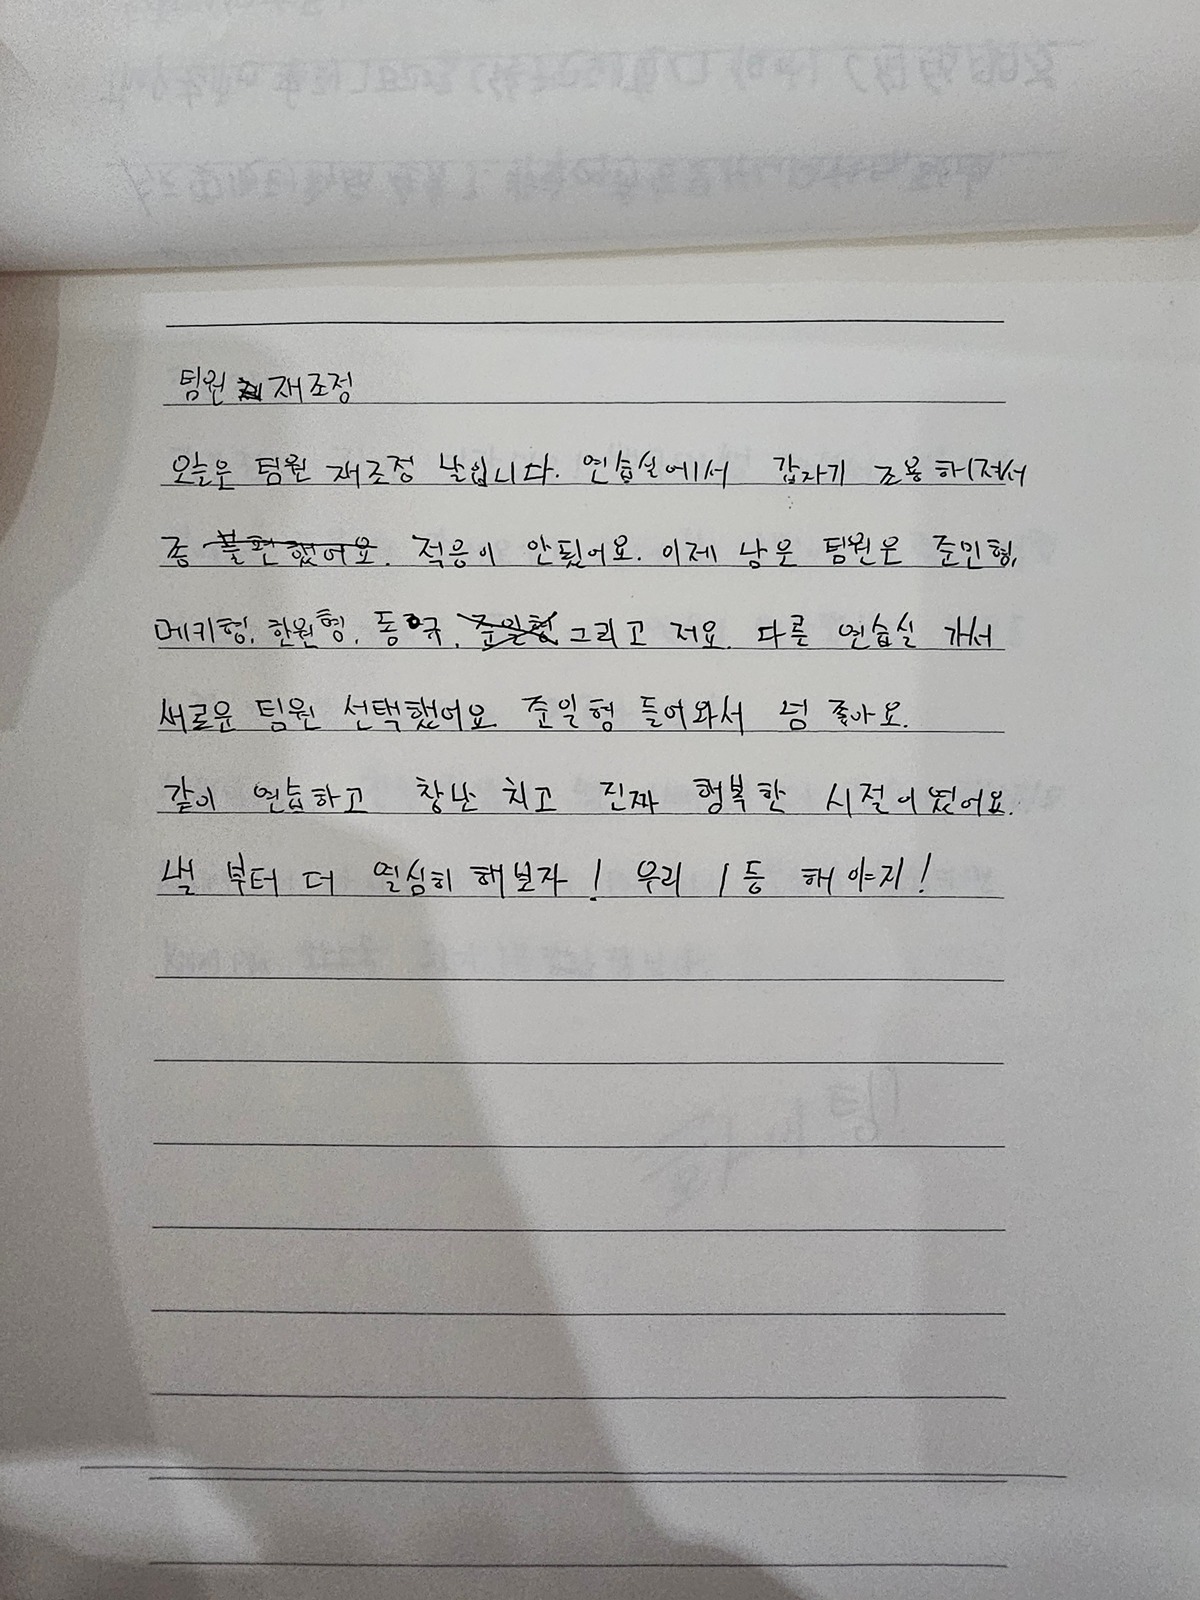 팀원 재조정
오늘은 팀원 재조정 날입니다. 연습실에서 갑자기 조용해져서
좀 불편했어요. 적응이 안됬어요. 이제 남은 팀원은 준민형,
메키형, 한원형, 동국, 준일형 그리고 저요. 다른 연습실 가서
새로운 팀원 선택했어요 준일형 들어와서 넘 좋아요.
같이 연습하고 장난 치고 진짜 행복한 시절이였어요.
낼 부터 더 열심히 해보자! 우리 1등 해야지!